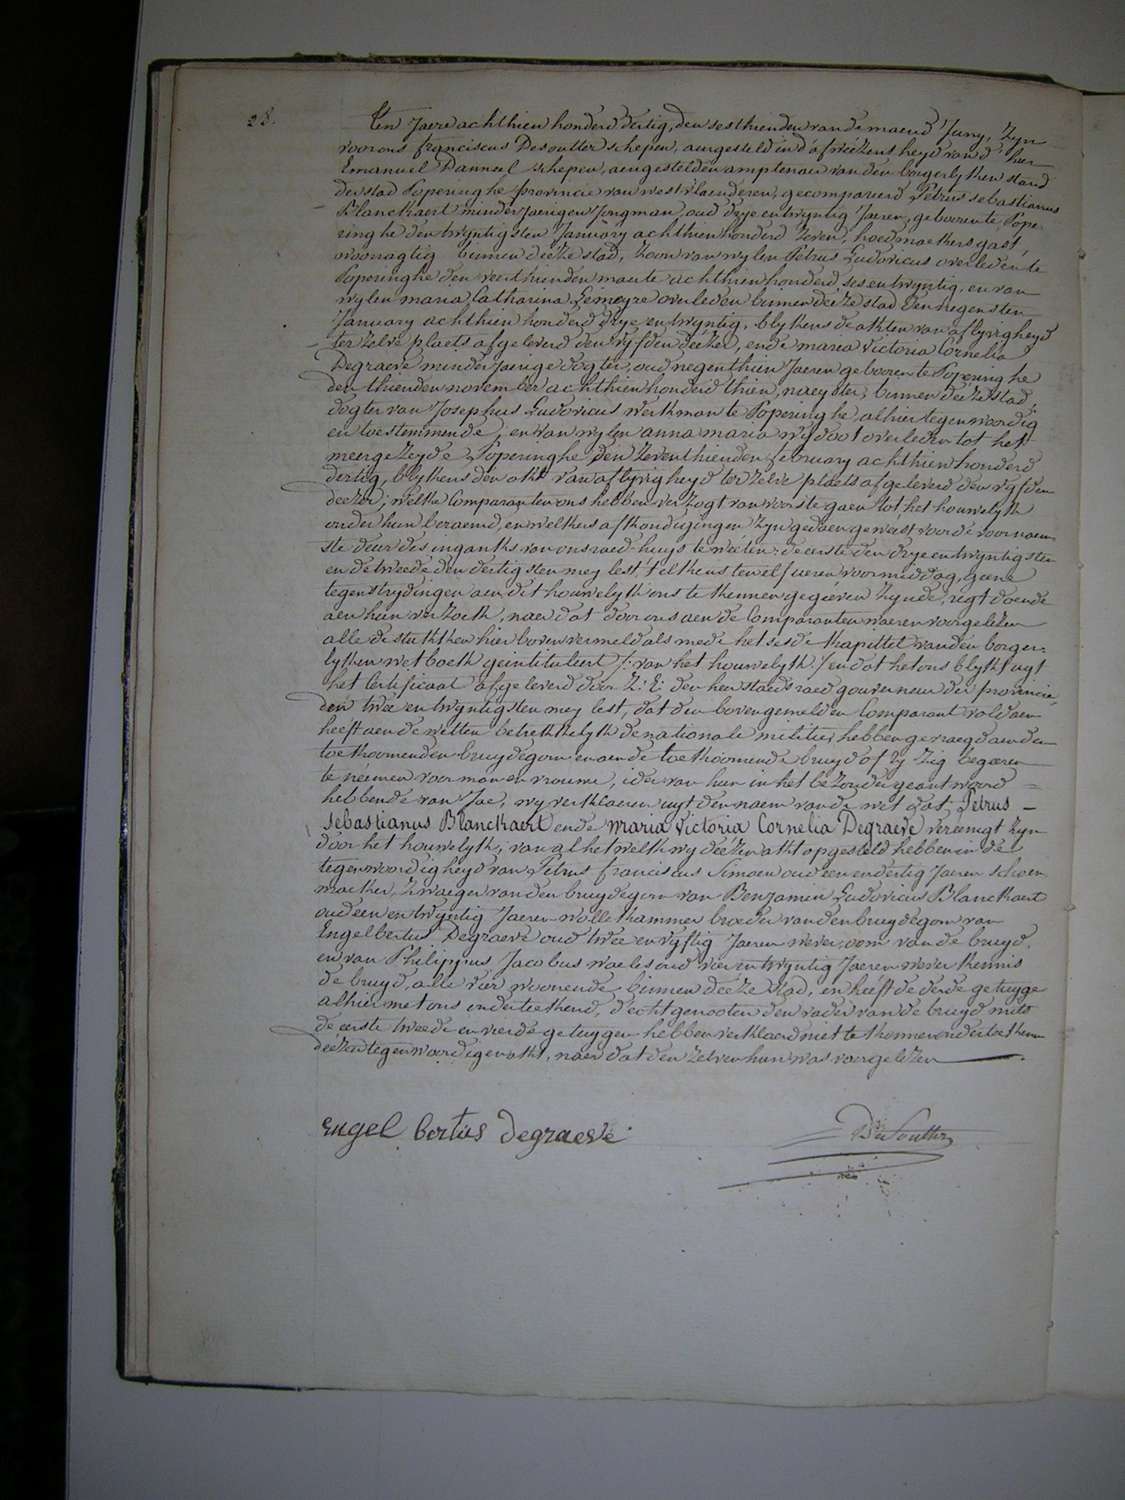 28.
Ten Jaere achthien honderd dertig, den sesthienden van de maend Juny, zyn
voor ons franciscus Desoutter schepen, aengesteld in d'afwézensheyd van d'heer
Emanuel Danneel schepen, aengestelden amptenaer van den borgerlyken stand
der stad Poperinghe provincie van westvlaenderen, gecompareerd Petrus sebastianus
Blanckaert minderjaerigen Jongman, oud drye en twyntig Jaeren, geboren te Pope-
ringhe den twyntigsten January achthien honderd zeven, hoedmaekers gast,
woonagtig binnen deeze stad, zoon van wylen Petrus Ludovicus overleden te
Poperinghe den veerthienden maerte achthien honderd ses en twyntig, en van
wylen maria Catharina Lemeyre overleden binnen deéze stad den negensten
January achthien honderd drye en twyntig, blykens de akten van aflyvigheyd
ter zelve plaets afgeleverd den vyfden deézer, ende maria victoria Cornelia
Degraeve minderjaerige dogter, oud negenthien Jaeren geboren te Poperinghe
den thienden november achthien honderd thien, naeyster, binnen deéze stad,
dogter van Josephus Ludovicus werkman te Poperinghe alhier tegenwoordig
en toestemmende, en van wylen anna maria wydoot overleden tot het
meergezeyde Poperinghe den zeventhienden february achthien honderd
dertig, blykens den akt van aflyvigheyd ter zelve plaets afgeleverd den vyfden
deezer; welke Comparanten ons hebben verzogt van voorts te gaen tot het houwelyk
onder hun beraemd, en welkers afkondigingen zyn gedaen geweest voor de voornaem-
ste deur des ingangs van ons raed-huys te weeten: de eerste den drye en twyntigsten
en de tweede den dertigsten mey lest, t'elkens ten elf ueren voormiddag, geene
tegenstrydingen aen dit houwelyk ons te kennen gegeéven zynde, regt doende
aen hun verzoek, naer dat door ons aen de Comparanten waeren voorgelezen
alle de stukken hier boven vermeld als mede het sesde kapittel van den borger-
lyken wetboek geintituleert /: van het houwelyk :/ en dat het ons blykt uyt
het Certificaat afgeleverd door Z: E: den heer staedsraed gouverneur der provincie
den twee en twyntigsten mey lest, dat den bovengemelden Comparant voldaen
heeft aen de wetten betrekkelyk de nationale militie, hebben gevraegd aen den
toekoomenden bruydegom en aen de toekoomende bruyd of zy zig begeeren
te neemen voor man en vrouwe, ider van hun in het bezonder geantwoord
hebbende van Jae, wy verklaeren uyt den naem van de wet dat, Petrus
Sebastianus Blanckaert ende Maria Victoria Cornelia Degraeve vereenigt zyn
door het houwelyk, van al het welk wy deézen akt opgesteld hebben in de
tegenwoordigheyd van Petrus franciscus Simoen oud een en dertig Jaeren schoen-
maeker, zwaeger van den bruydegom van Benjamin Ludovicus Blanckaert
oud een en twyntig Jaeren wollekammer broeder van den bruydegom van
Engelbertus Degraeve oud twee en vyftig Jaeren wever oom van de bruyd,
en van Philippus Jacobus waeles oud vier en twyntig Jaeren wever kennis
de bruyd, alle vier woonende binnen deéze stad, en heéft de derde getuyge
alhier met ons onderteekend, d'echtgenooten den vader van de bruyd mits
de eerste tweede en vierde getuygen hebben verklaerd niet te konnen onderteekenen
deézen tegenwoordigen akt, naer dat den zelven hun was voorgelézen
Engel bertus degraeve
D: Soutter